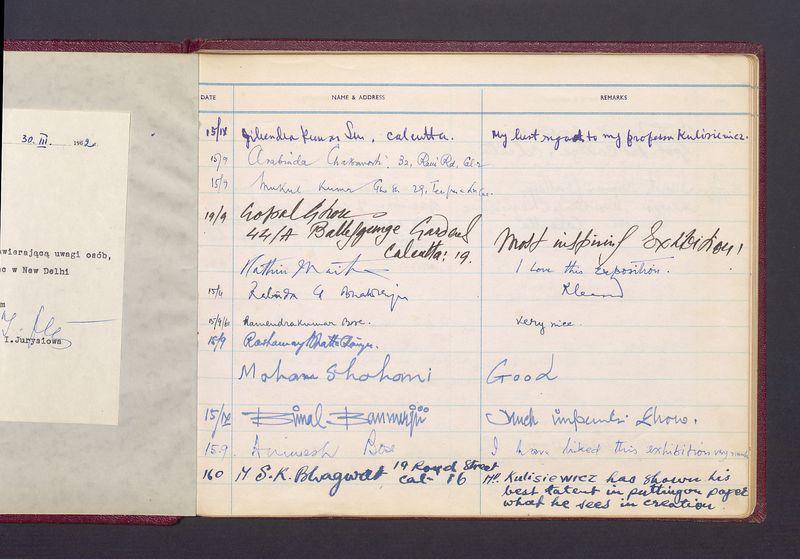 30. III. 1962
awierającą uwagi osób,
ac w New Delhi
m
I.Jurysiowa
DATE NAME & ADDRESS REMARKS
15/IX Jitendra Kumar Sen, Calcutta. My best regards to my professor Kulisiewicz.
15/9 Arabinda 32, Rd, Cal-2
15/9 Mukul Kumar 29,
19/9 Gopal Ghose
44/A Ballygunge Gardens Most inspiring Exhibition!
Calcutta: 19.
I love this exposition.
15/9
15/9/60 Ramendrakumar Bose. very nice.
15/9
Moham Shahani Good
15/IX Bimal Bannerjii Much show.
15.9. Animesh Bose I have liked this exhibition very much
160 S.K. Bhagwat 19 Royd Street Mr. Kulisiewicz has shown his
Cal- 16 best talent in putting on paper
what he sees in creation.